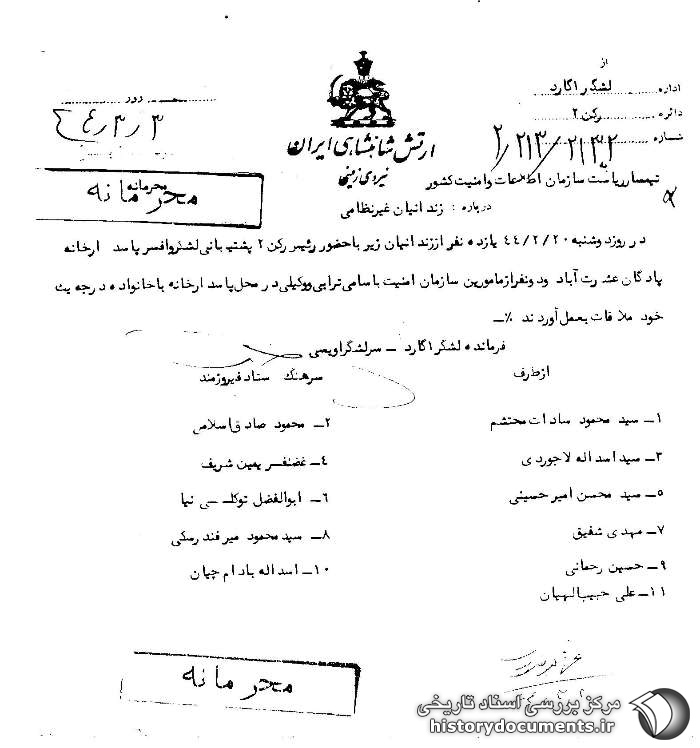 از
اداره لشگر ۱ گارد
دائره رکن ۲
شماره ۲/۲۱۳/۲۱۳۲
روز
۴۴/۳/۳
ارتش شاهنشاهی ایران
نیروی زمینی
محرمانه
محرمانه
تیمسار ریاست سازمان اطلاعات و امنیت کشور
درباره : زندانیان غیرنظامی
در روز دوشنبه ۴۴/۲/۲۰ یازده نفر از زندانیان زیر با حضور رئیس رکن ۲ پشتیبانی لشگر و افسر پاسدارخانه
پادگان عشرت آباد ودونفر از مامورین سازمان امنیت باسامی ترابی ووکیلی در محل پاسدارخانه با خانواده درجه یک
خود ملاقات بعمل آوردند ٪ـ
فرمانده لشگر ۱ گارد ـ سرلشگر اویسی
از طرف
سرهنگ ستاد فیروزمند
۱ـ سید محمود سادات محتشم
۲ـ محمود صادق اسلامی
۳ـ سید اسداله لاجوردی
۴ـ غضنفر یمین شریف
۵ـ سید محسن امیر حسینی
۶ـ ابوالفضل توکلی نیا
۷ـ مهدی شفیق
۸ـ سید محمود میرفندرسکی
۹ـ حسین رحمانی
۱۰ـ اسداله بادامچیان
۱۱ـ علی حبیب الهیان
محرمانه
مرکز بررسی اسناد تاریخی
historydocuments.ir